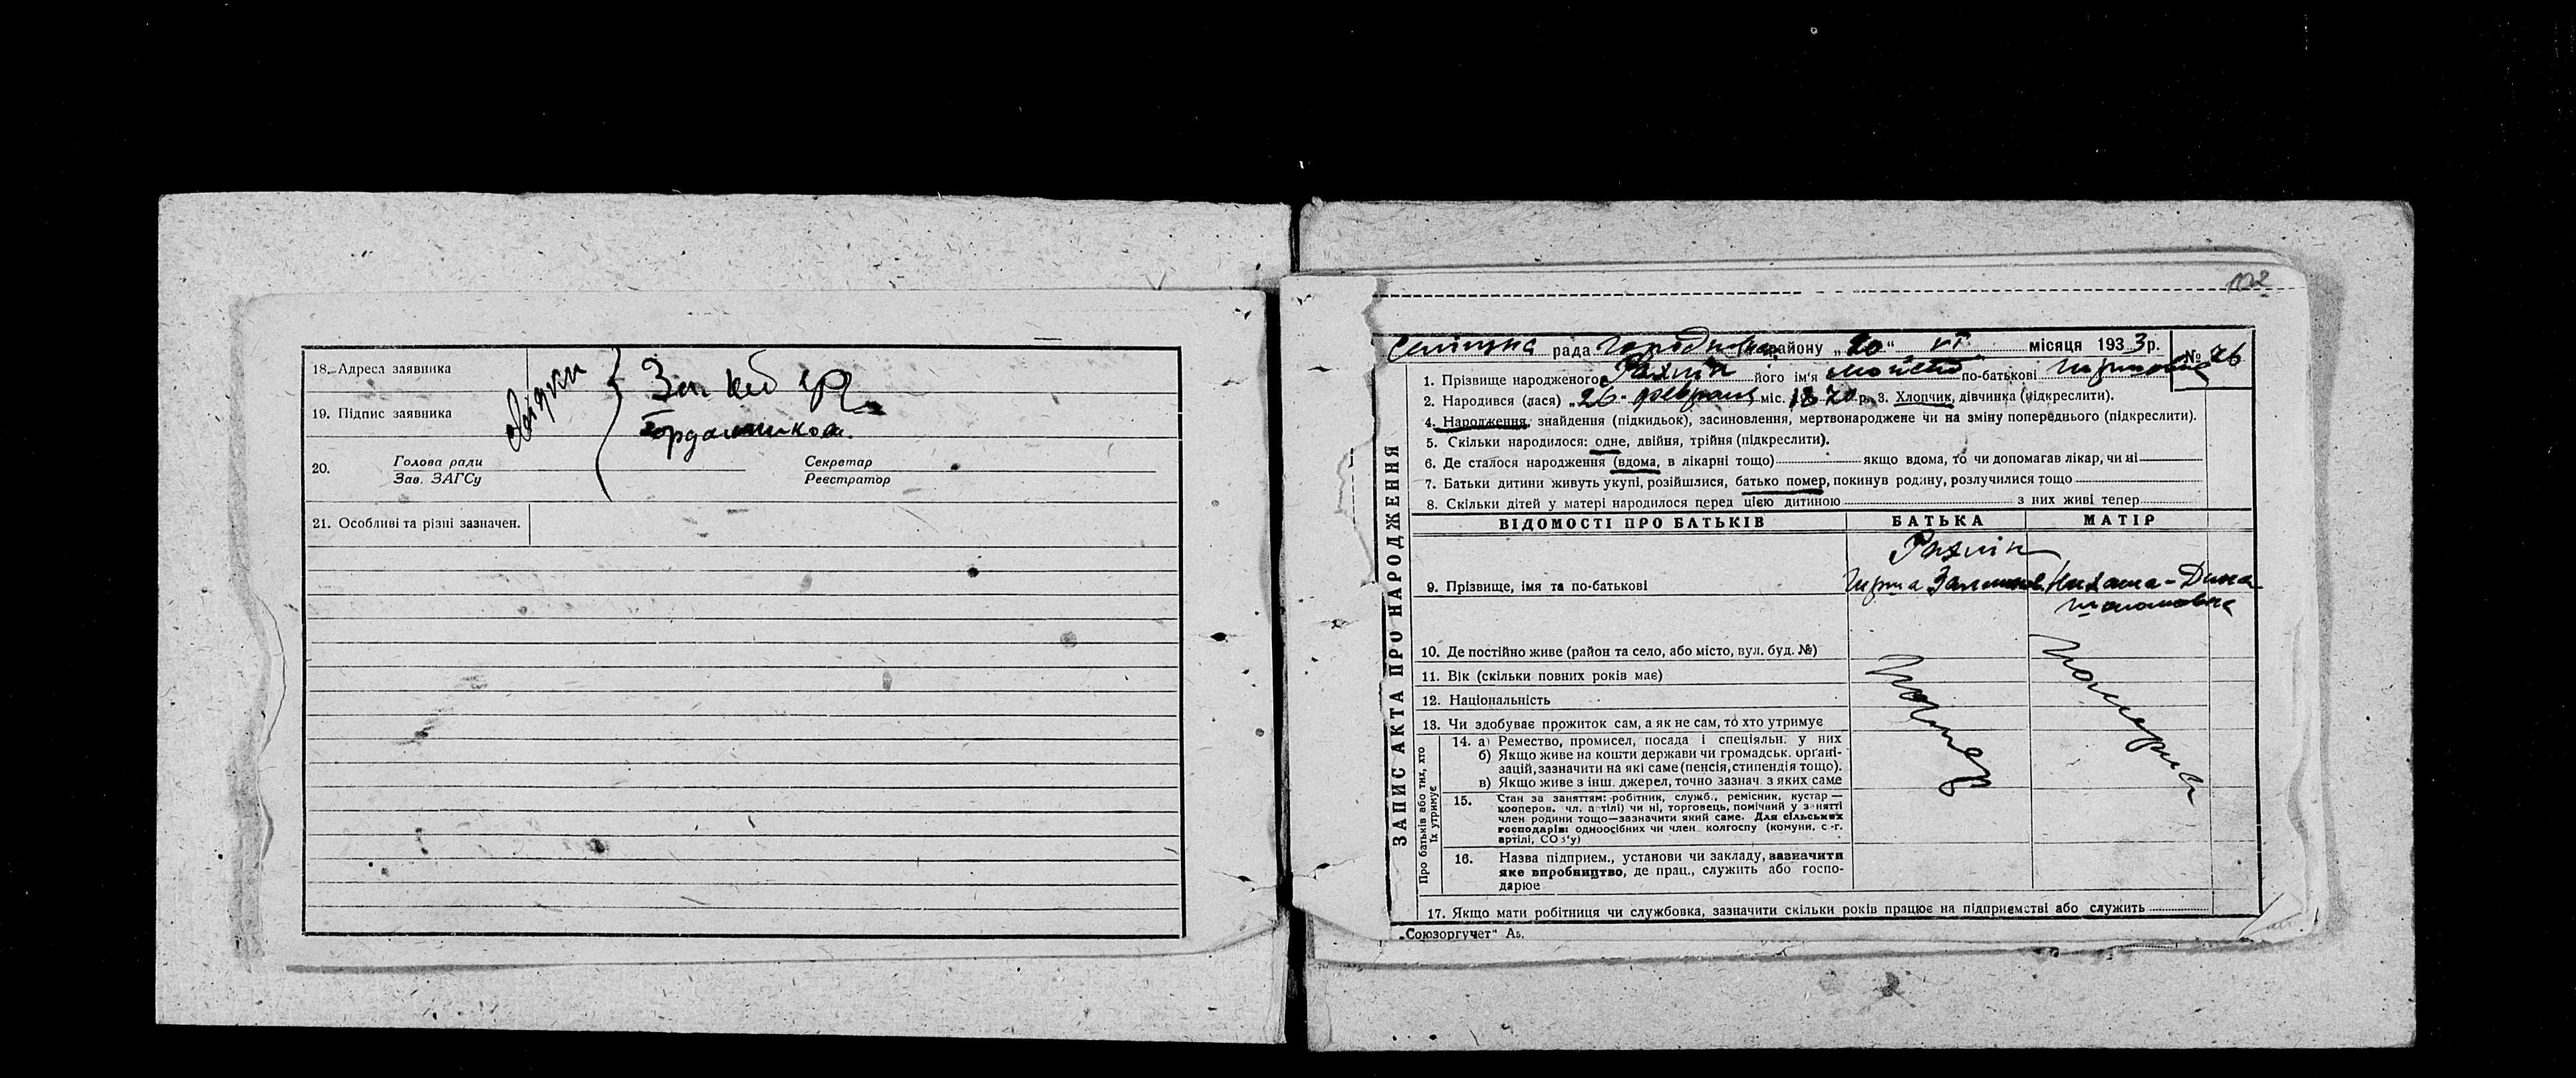 18. Адреса заявника
19. Підпис заявника
20. Голова ради Секретар
Зав. ЗАГСу Реєстратор
21. Особливі та різні зазначен.
102
ЗАПИС АКТА ПРО НАРОДЖЕННЯ
рада району „20“ VI місяця 1933 р. № 26
1. Прізвище народженого Рахлін його ім'я по-батькові
2. Народився (лася) „26“ февраля міс. 1870 р. 3. Хлопчик, дівчинка (підкреслити).
4. Народження, знайдення (підкидьок), засиновлення, мертвонароджене чи на зміну попереднього (підкреслити).
5. Скільки народилося: одне, двійня, трійня (підкреслити).
6. Де сталося народження (вдома, в лікарні тощо) якщо вдома, то чи допомагав лікар, чи ні
7. Батьки дитини живуть укупі, розійшлися, батько помер, покинув родину, розлучилися тощо
8. Скільки дітей у матері народилося перед цією дитиною з них живі тепер
ВІДОМОСТІ ПРО БАТЬКІВ БАТЬКА МАТІР
Рахлін
9. Прізвище, імя та по-батькові Дина
10. Де постійно живе (район та село, або місто, вул. буд. №)
11. Вік (скільки повних років має)
12. Національність
13. Чи здобуває прожиток сам, а як не сам, то хто утримує
Про батьків або тих, хто їх утримує
14. а) Ремество, промисел, посада і спеціяльн. у них
б) Якщо живе на кошти держави чи громадськ. органі-
зацій, зазначити на які саме (пенсія, стипендія тощо).
в) Якщо живе з інш. джерел, точно зазнач. з яких саме
15. Стан за заняттям: робітник, служб., ремісник, кустар —
кооперов. чл. артілі) чи ні, торговець, помічний у занятті
член родини тощо—зазначити який саме. Для сільських
господарів: одноосібних чи член колгоспу (комуни, с.-г.
артілі, СОЗ'у)
16. Назва підприєм., установи чи закладу, зазначити
яке виробництво, де прац., служить або госпо-
дарює
17. Якщо мати робітниця чи службовка, зазначити скільки років працює на підприємстві або служить
„Союзоргучет“ А5.